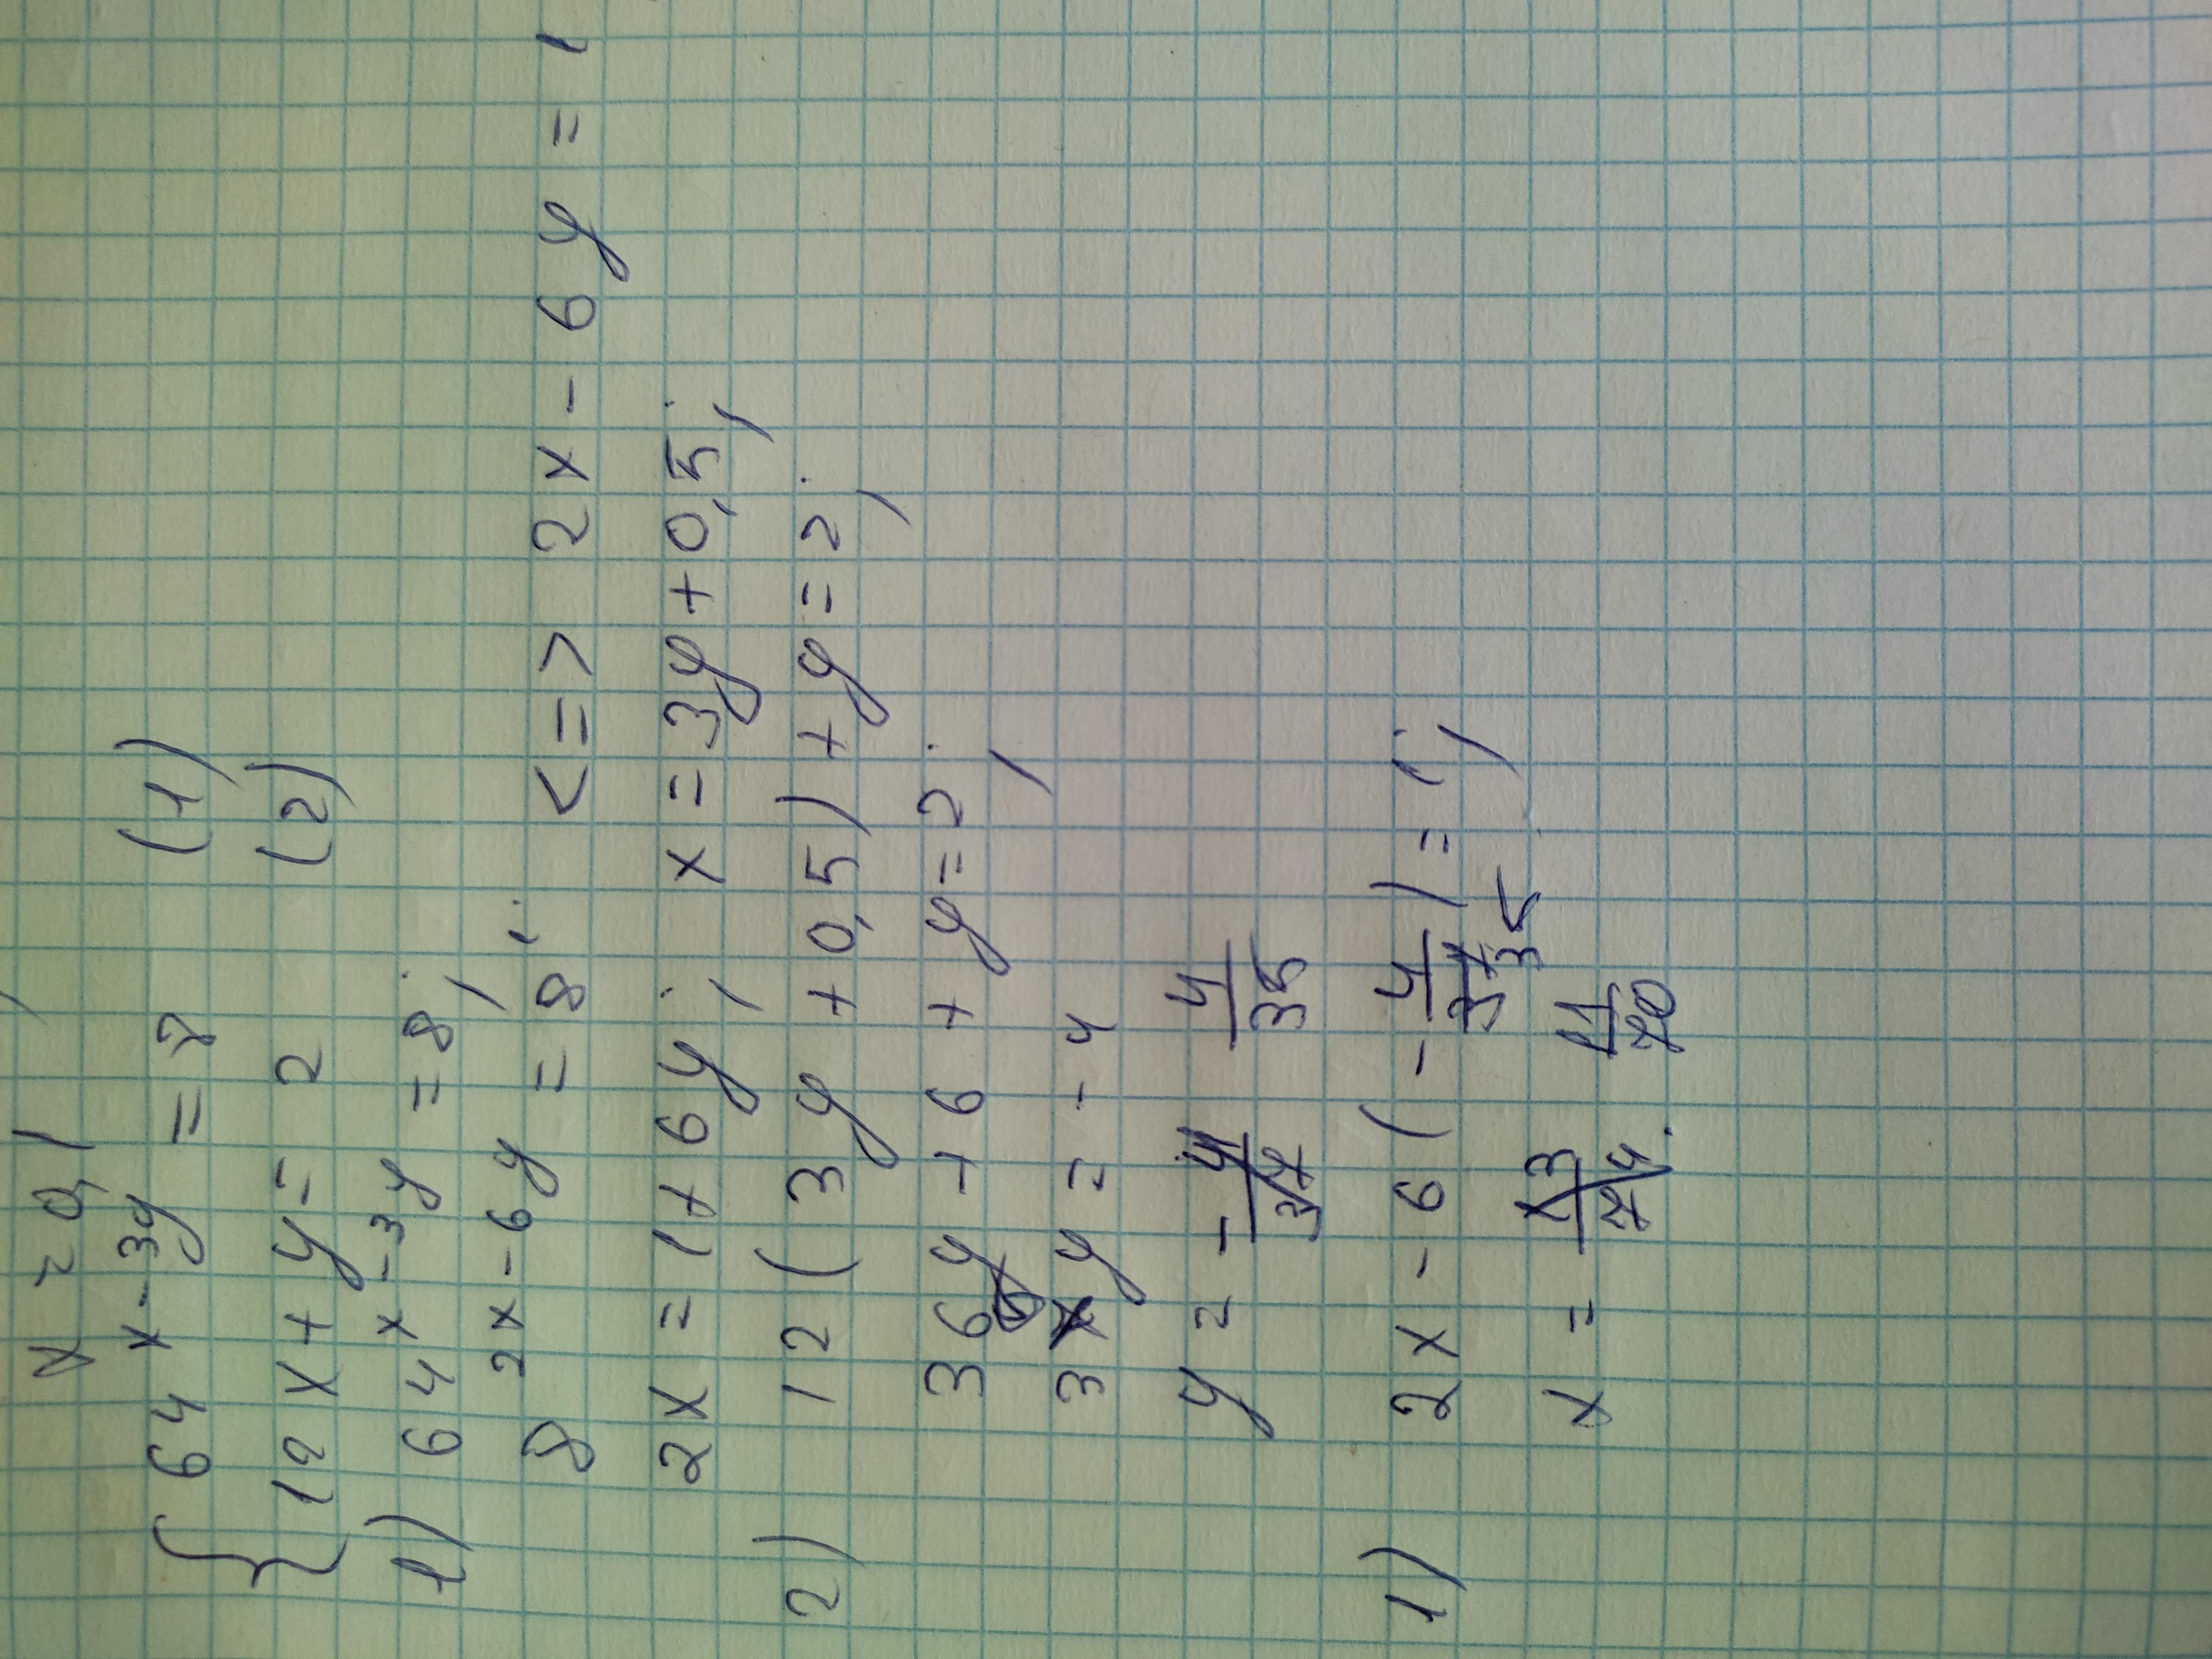 x = 0,1
{ 64^(x-3y) = 8 (1)
12x + y = 2 (2)
1) 64^(x-3y) = 8;
8^(2x-6y) = 8^1; <=> 2x - 6y = 1
2x = 1 + 6y; x = 3y + 0,5;
2) 12(3y + 0,5) + y = 2;
36y + 6 + y = 2;
37y = -4
y = -4/37 4/35
1) 2x - 6(-4/37 35) = 1;
x = 13/74. 11/70